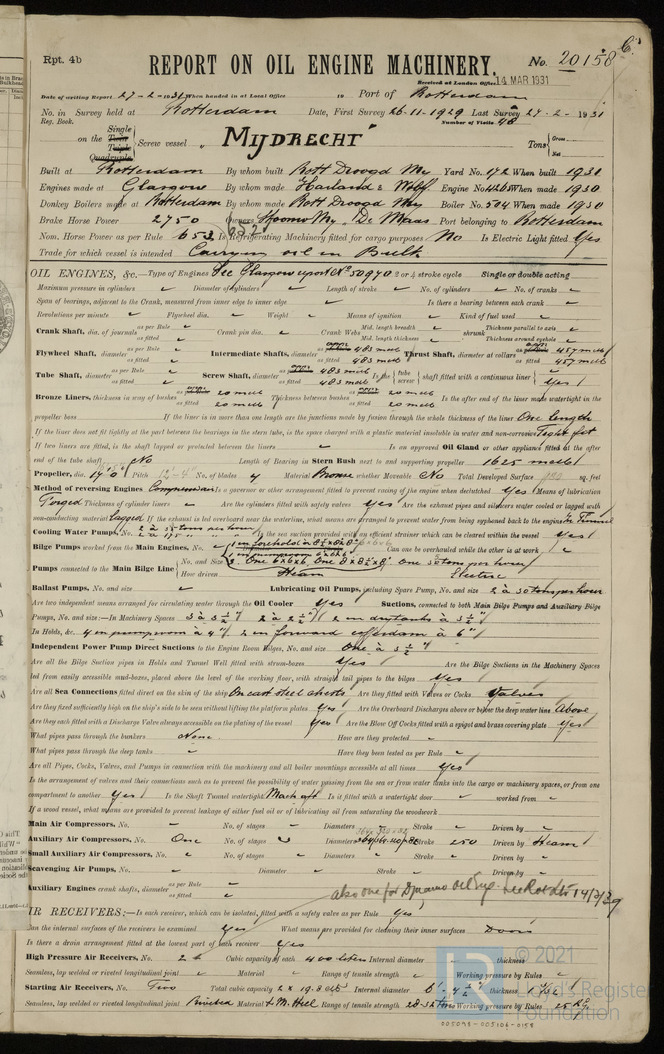 Rpt. 4b
REPORT ON OIL ENGINE MACHINERY.
No. 20158
Received at London Office 14 MAR 1931
Date of writing Report 27-2-1931 When handed in at Local Office 19 Port of Rotterdam
No. in Survey held at Rotterdam Date, First Survey 26-11-1929 Last Survey 27-2-1931
Reg. Book. Number of Visits 48
on the Single Twin Triple Quadruple Screw vessel "MIJDRECHT" Tons Gross Net
Built at Rotterdam By whom built Rott Droogd My Yard No. 172 When built 1930
Engines made at Glasgow By whom made Harland & Wolff Engine No. When made 1930
Donkey Boilers made at Rotterdam By whom made Rott Droogd My Boiler No. 504 When made 1930
Brake Horse Power 2750 Owners Stoomv My. De Maas Port belonging to Rotterdam
Nom. Horse Power as per Rule 653 Is Refrigerating Machinery fitted for cargo purposes No Is Electric Light fitted Yes
Trade for which vessel is intended Carrying oil in Bulk
OIL ENGINES, &c.—Type of Engines See Glasgow report No 50970 2 or 4 stroke cycle Single or double acting
Maximum pressure in cylinders Diameter of cylinders Length of stroke No. of cylinders No. of cranks
Span of bearings, adjacent to the Crank, measured from inner edge to inner edge Is there a bearing between each crank
Revolutions per minute Flywheel dia. Weight Means of ignition Kind of fuel used
Crank Shaft, dia. of journals as per Rule as fitted Crank pin dia. Crank Webs Mid. length breadth Mid. length thickness shrunk Thickness parallel to axis Thickness around eyehole
Flywheel Shaft, diameter as per Rule as fitted Intermediate Shafts, diameter 483 m as fitted 483 m Thrust Shaft, diameter at collars 457 m as fitted 457 m
Tube Shaft, diameter as per Rule as fitted Screw Shaft, diameter 483 m as fitted 483 m Is the tube screw shaft fitted with a continuous liner Yes
Bronze Liners, thickness in way of bushes 20 m as fitted 20 m Thickness between bushes 20 m as fitted 20 m Is the after end of the liner made watertight in the
propeller boss If the liner is in more than one length are the junctions made by fusion through the whole thickness of the liner One length
If the liner does not fit tightly at the part between the bearings in the stern tube, is the space charged with a plastic material insoluble in water and non-corrosive Tight fit
If two liners are fitted, is the shaft lapped or protected between the liners Is an approved Oil Gland or other appliance fitted at the after
end of the tube shaft No Length of Bearing in Stern Bush next to and supporting propeller 1625 m
Propeller, dia. Pitch No. of blades 4 Material Bronze whether Moveable No Total Developed Surface sq. feet
Method of reversing Engines Is a governor or other arrangement fitted to prevent racing of the engine when declutched Yes Means of lubrication
Forced Thickness of cylinder liners Are the cylinders fitted with safety valves Yes Are the exhaust pipes and silencers water cooled or lagged with
non-conducting material lagged If the exhaust is led overboard near the waterline, what means are arranged to prevent water from being syphoned back to the engine In Funnel
Cooling Water Pumps, No. Is the sea suction provided with an efficient strainer which can be cleared within the vessel Yes
Bilge Pumps worked from the Main Engines, No. Can one be overhauled while the other is at work
Pumps connected to the Main Bilge Line No. and Size How driven Steam Electric
Ballast Pumps, No. and size Lubricating Oil Pumps, including Spare Pump, No. and size 2 a 30 tons per hour
Are two independent means arranged for circulating water through the Oil Cooler Yes Suctions, connected to both Main Bilge Pumps and Auxiliary Bilge
Pumps, No. and size:—In Machinery Spaces 3 à 3 ½" 2 à 2 ½" 2 in drytanks à 3 ½"
In Holds, &c. 4 in pumproom à 4" 2 in forward cofferdam à 6"
Independent Power Pump Direct Suctions to the Engine Room Bilges, No. and size One à 5 ½"
Are all the Bilge Suction pipes in Holds and Tunnel Well fitted with strum-boxes Yes Are the Bilge Suctions in the Machinery Spaces
led from easily accessible mud-boxes, placed above the level of the working floor, with straight tail pipes to the bilges Yes
Are all Sea Connections fitted direct on the skin of the ship On cast steel chests Are they fitted with Valves or Cocks Valves
Are they fixed sufficiently high on the ship's side to be seen without lifting the platform plates Yes Are the Overboard Discharges above or below the deep water line Above
Are they each fitted with a Discharge Valve always accessible on the plating of the vessel Yes Are the Blow Off Cocks fitted with a spigot and brass covering plate Yes
What pipes pass through the bunkers None How are they protected
What pipes pass through the deep tanks Have they been tested as per Rule
Are all Pipes, Cocks, Valves, and Pumps in connection with the machinery and all boiler mountings accessible at all times Yes
Is the arrangement of valves and their connections such as to prevent the possibility of water passing from the sea or from water tanks into the cargo or machinery spaces, or from one
compartment to another Yes Is the Shaft Tunnel watertight Mach aft Is it fitted with a watertight door worked from
If a wood vessel, what means are provided to prevent leakage of either fuel oil or of lubricating oil from saturating the woodwork
Main Air Compressors, No. No. of stages Diameters Stroke Driven by
Auxiliary Air Compressors, No. One No. of stages Diameters Stroke 250 Driven by Steam
Small Auxiliary Air Compressors, No. No. of stages Diameters Stroke Driven by
Scavenging Air Pumps, No. Diameter Stroke Driven by
Auxiliary Engines crank shafts, diameter as per Rule as fitted also one for Dynamo oil Eng.
IR RECEIVERS:—Is each receiver, which can be isolated, fitted with a safety valve as per Rule Yes
Can the internal surfaces of the receivers be examined Yes What means are provided for cleaning their inner surfaces Doors
Is there a drain arrangement fitted at the lowest part of each receiver Yes
High Pressure Air Receivers, No. Cubic capacity of each 400 liters Internal diameter thickness
Seamless, lap welded or riveted longitudinal joint Material Range of tensile strength Working pressure by Rules
Starting Air Receivers, No. Two Total cubic capacity Internal diameter thickness
Seamless, lap welded or riveted longitudinal joint Riveted Material S.M. Steel Range of tensile strength 28-32 tons Working pressure by Rules 25 KG
© 2021
Lloyd's Register
Foundation
005098-005106-0158